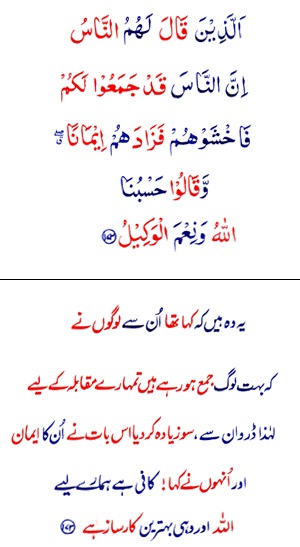 اَلَّذِیْنَ قَالَ لَهُمُ النَّاسُ
اِنَّ النَّاسَ قَدْ جَمَعُوْا لَكُمْ
فَاخْشَوْهُمْ فَزَادَهُمْ اِیْمَانًا
وَّقَالُوْا حَسْبُنَا
اللّٰهُ وَنِعْمَ الْوَكِیْلُ ﴿۱۷۳﴾
یہ وہ ہیں کہ کہا تھا اُن سے لوگوں نے
کہ بہت لوگ جمع ہو رہے ہیں تمہارے مقابلہ کے لیے
لہٰذا ڈرو ان سے، سو زیادہ کر دیا اس بات نے اُن کا ایمان
اور اُنہوں نے کہا! کافی ہے ہمارے لیے
اللہ اور وہی بہترین کارساز ہے ﴿۱۷۳﴾